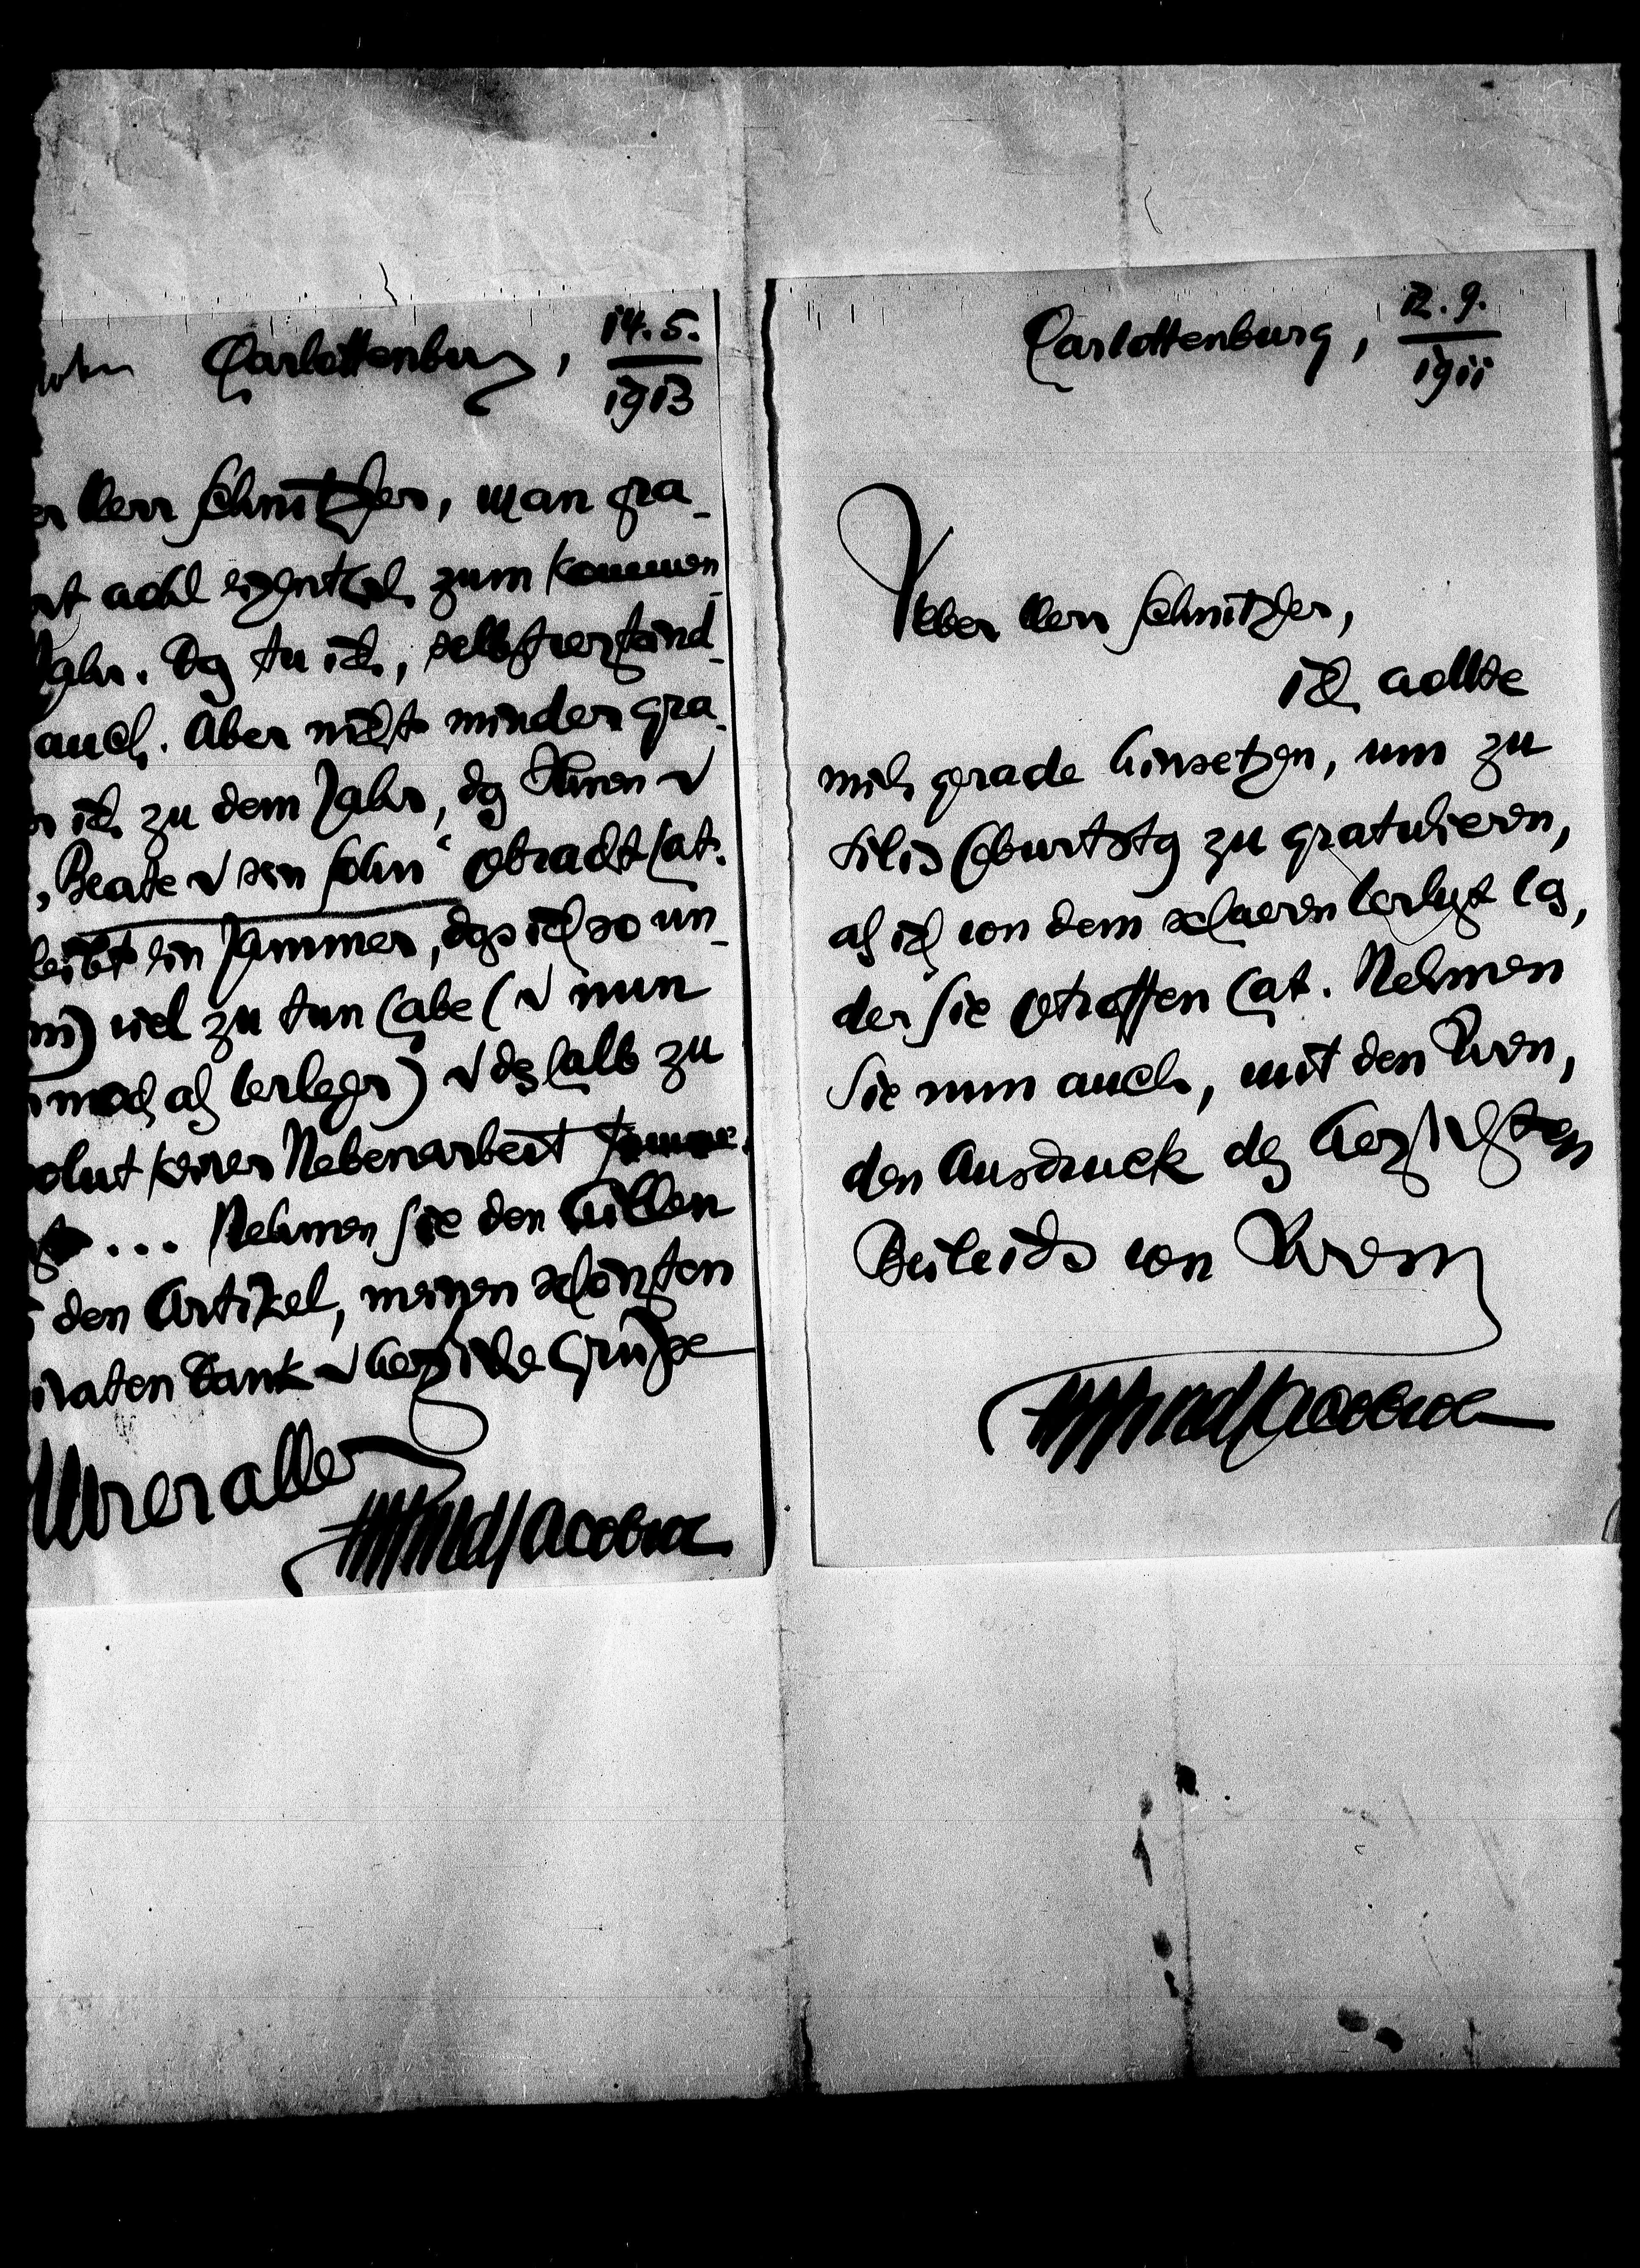 Charlottenburg, 14.5.
1913
er Herr Schnitzler, man gra-
rt wohl eigentlich zum kommen-
Jahr. Das tu ich, selbstverständ-
auch. Aber nicht minder gra-
r ich zu dem Jahr, das Ihnen u
„Beate u sein Sohn“ gebracht hat.
leibt ein Jammer, dass ich so un-
m) viel zu tun habe (u nun
noch als Verleger) u deshalb zu
olut keiner Nebenarbeit komme.
... Nehmen Sie den Willen
den Artikel, meinen schönsten
ivaten Dank u herzliche Grüße
Ihrer aller
Alfred Jacobsohn
Charlottenburg, 12.9.
1911
Lieber Herr Schnitzler,
ich wollte
mich gerade hinsetzen, um zu
Lilis Geburtstg zu gratulieren,
als ich von dem schweren Verlust las,
der Sie getroffen hat. Nehmen
Sie nun auch, mit den Ihren,
den Ausdruck des herzlichsten
Beileids von Ihrem